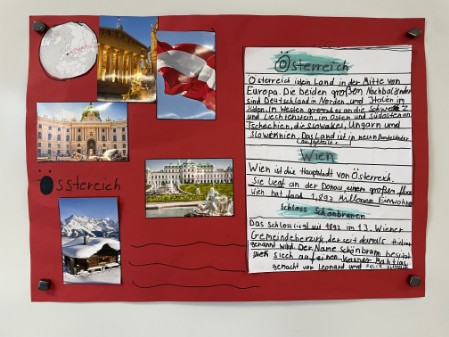 Össtereich
Österreich
Österreich ist ein Land in der Mitte von
Europa. Die beiden großen Nachbarländer
sind Deutschland in Norden und Italien im
Süden. Im Westen grenzt es an die Schweiz
und Liechtenstein, im Osten und Südosten an
Tschechien, die Slowakei, Ungarn und
Slowenien. Das Land ist in neun Bundesländer
Wien
Wien ist die Hauptstadt von Österreich.
Sie liegt an der Donau, einen großen Fluss
Wien hat fund 1,892 Millionen Einwohner
Schloss Schönbrunn
Das Schloss liegt seit 1892 im 13. Wiener
Gemeindebezirk, der seit damals
genannt wird. Der Name Schönbrunn
sich auf einen
gemacht von und